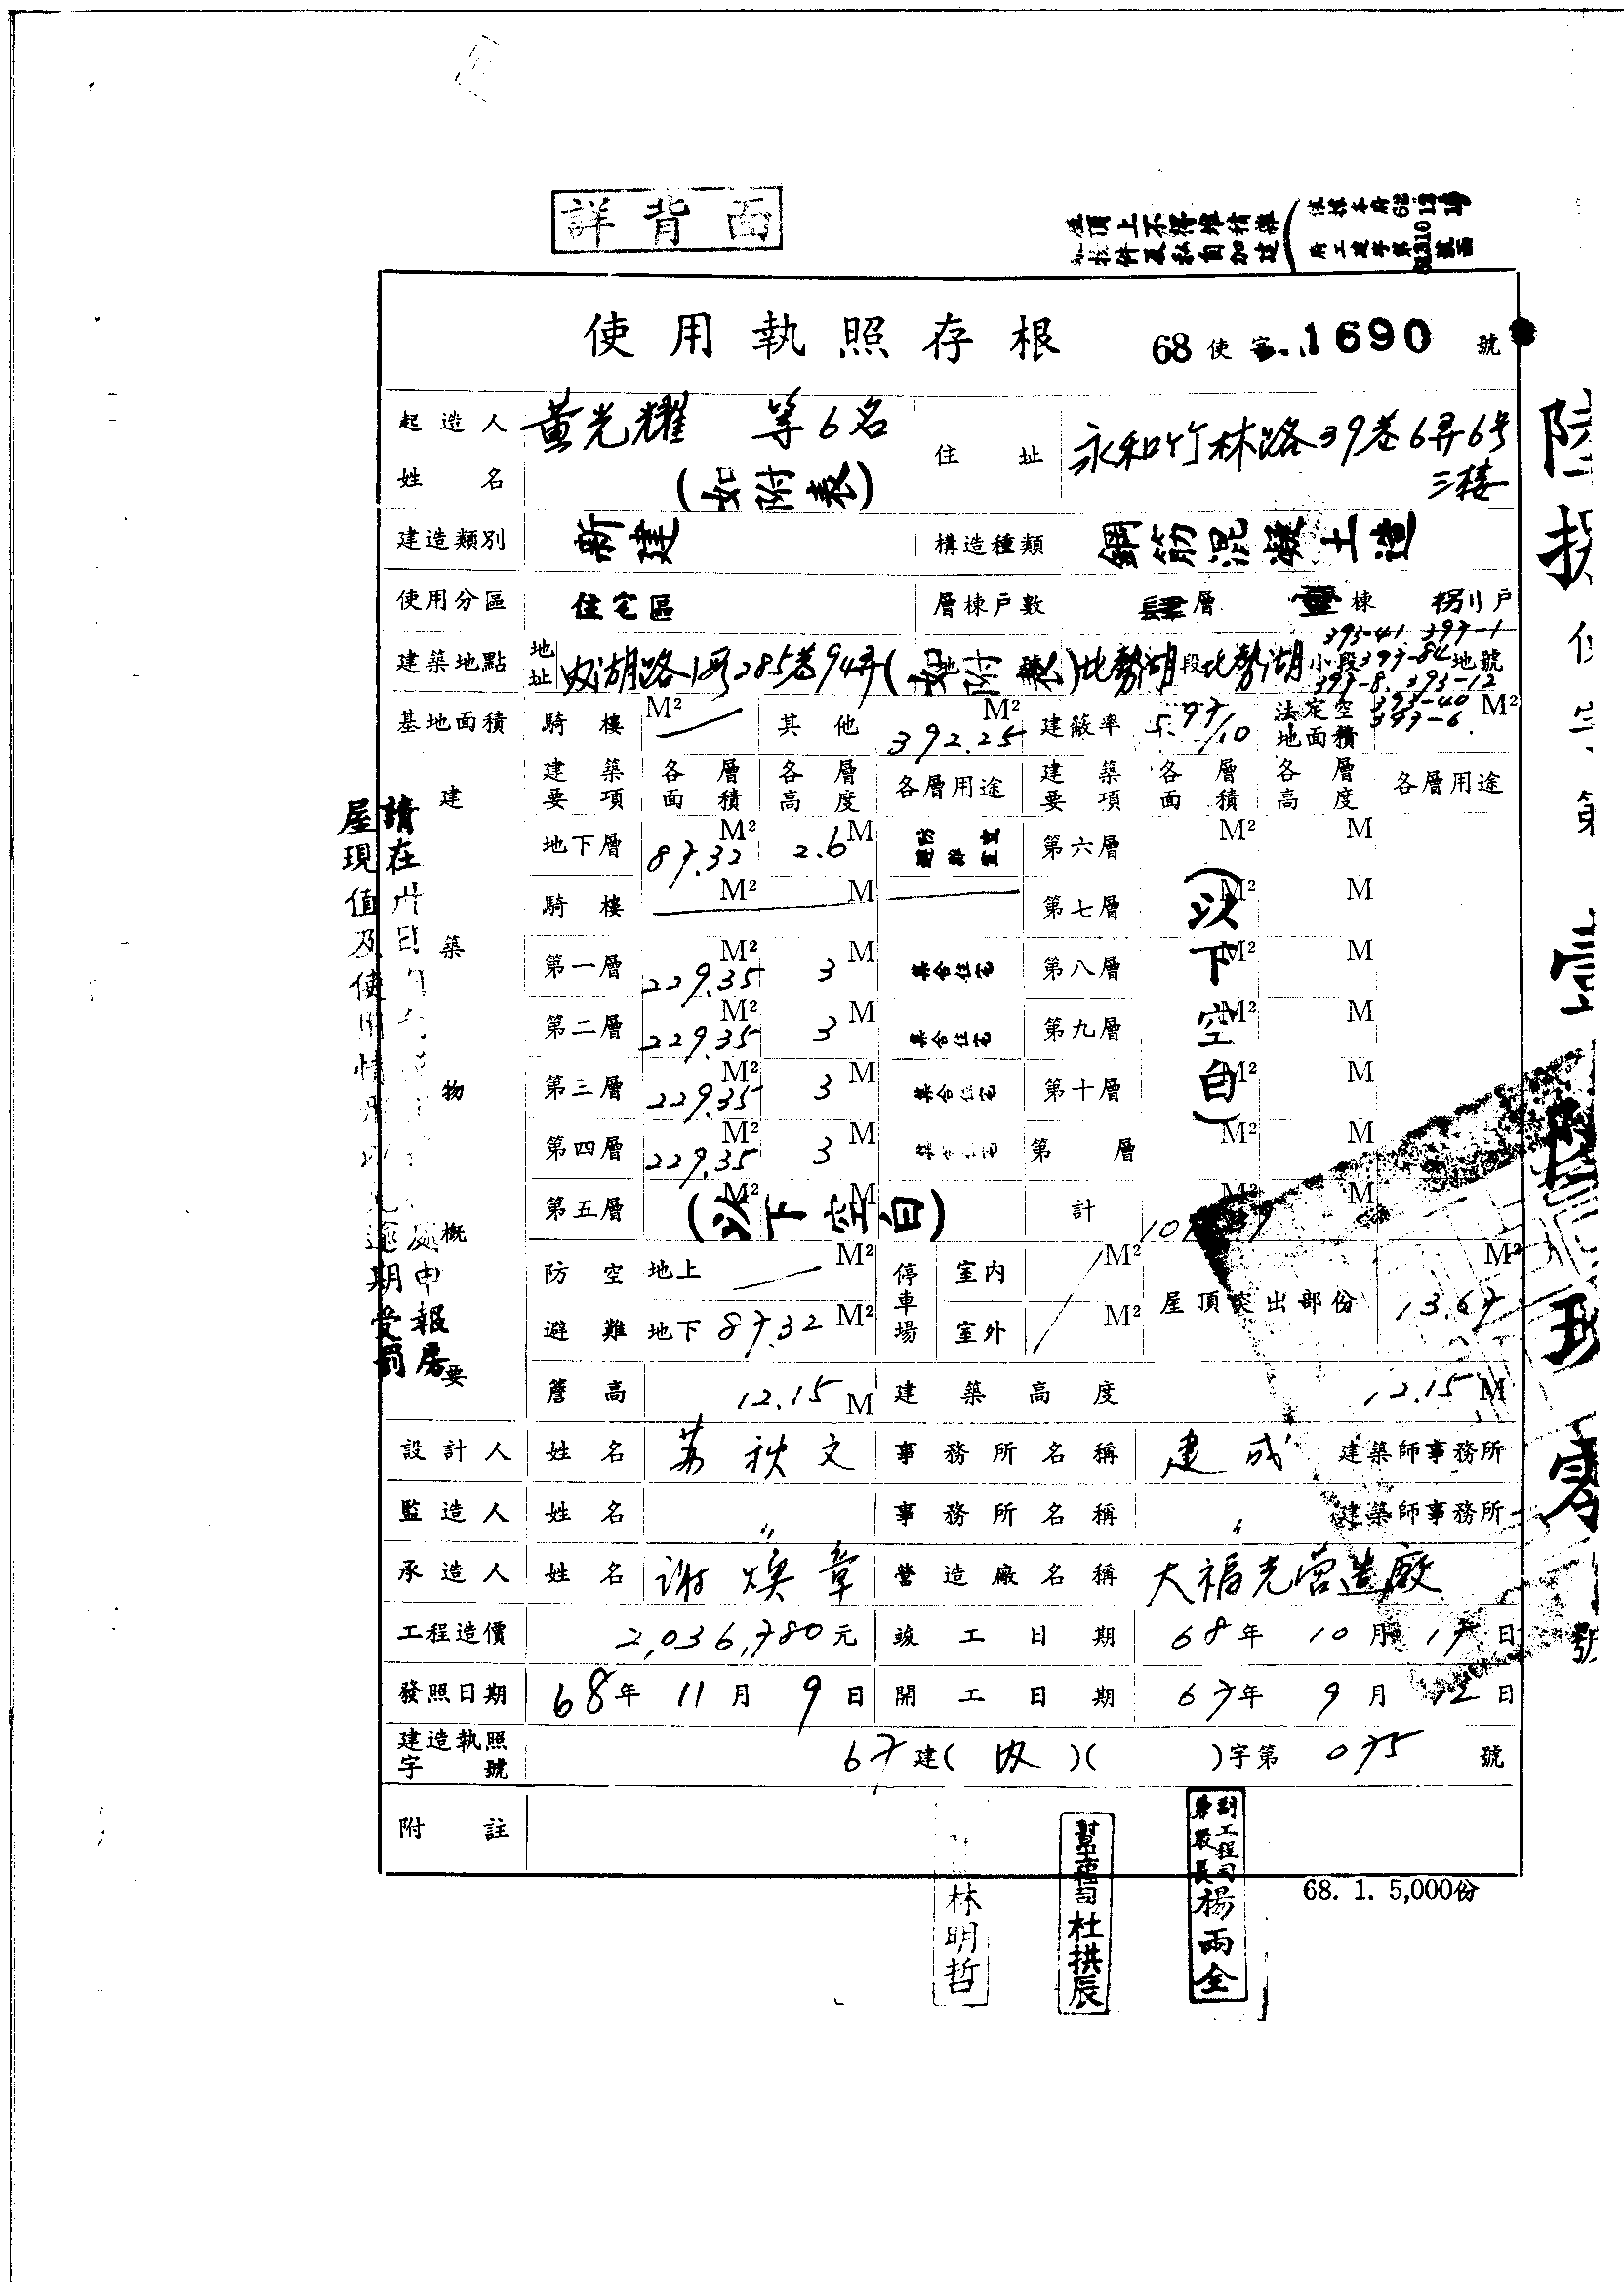 詳背面
屋頂上不得堆積雜
使用執照存根 68使字 1690 號
起造人姓名 黃光耀 等6名 (如附表) 住址 永和竹林路39巷6弄6号三樓
建造類別 新建 構造種類 鋼筋混凝土造
使用分區 住宅區 層棟戶數 肆層 壹棟 捌戶
建築地點 地址 內湖路1段285巷94弄(如附表) 北勢湖段北勢湖小段 393-41 397-1 397-84地號 397-8 393-12 393-40 397-6
基地面積 騎樓 M² 其他 392.25 M² 建蔽率 5.97/10 法定空地面積 M²
建築要項 各層面積 各層高度 各層用途 建築要項 各層面積 各層高度 各層用途
地下層 87.32 M² 2.6 M 第六層 M² M
騎樓 M² M 第七層 M² M
第一層 229.35 M² 3 M 集合住宅 第八層 M² M
第二層 229.35 M² 3 M 集合住宅 第九層 M² M
第三層 229.35 M² 3 M 集合住宅 第十層 M² M
第四層 229.35 M² 3 M 集合住宅 第 層 M² M
第五層 M² M (以下空白) 計 M² M
(以下空白)
建築物概要
防空避難 地上 M² 停車場 室內 M² 屋頂突出部份 13.67 M²
地下 87.32 M² 室外 M²
簷高 12.15 M 建築高度 12.15 M
設計人 姓名 秋文 事務所名稱 建成 建築師事務所
監造人 姓名 〃 事務所名稱 〃 建築師事務所
承造人 姓名 謝煥章 營造廠名稱 大福光营造廠
工程造價 2,036,780元 竣工日期 68年 10月 17日
發照日期 68年 11月 9日 開工日期 67年 9月 12日
建造執照字號 67建(內)( )字第 075 號
附註
68. 1. 5,000份
林明哲
杜拱辰
副工程司 楊雨全